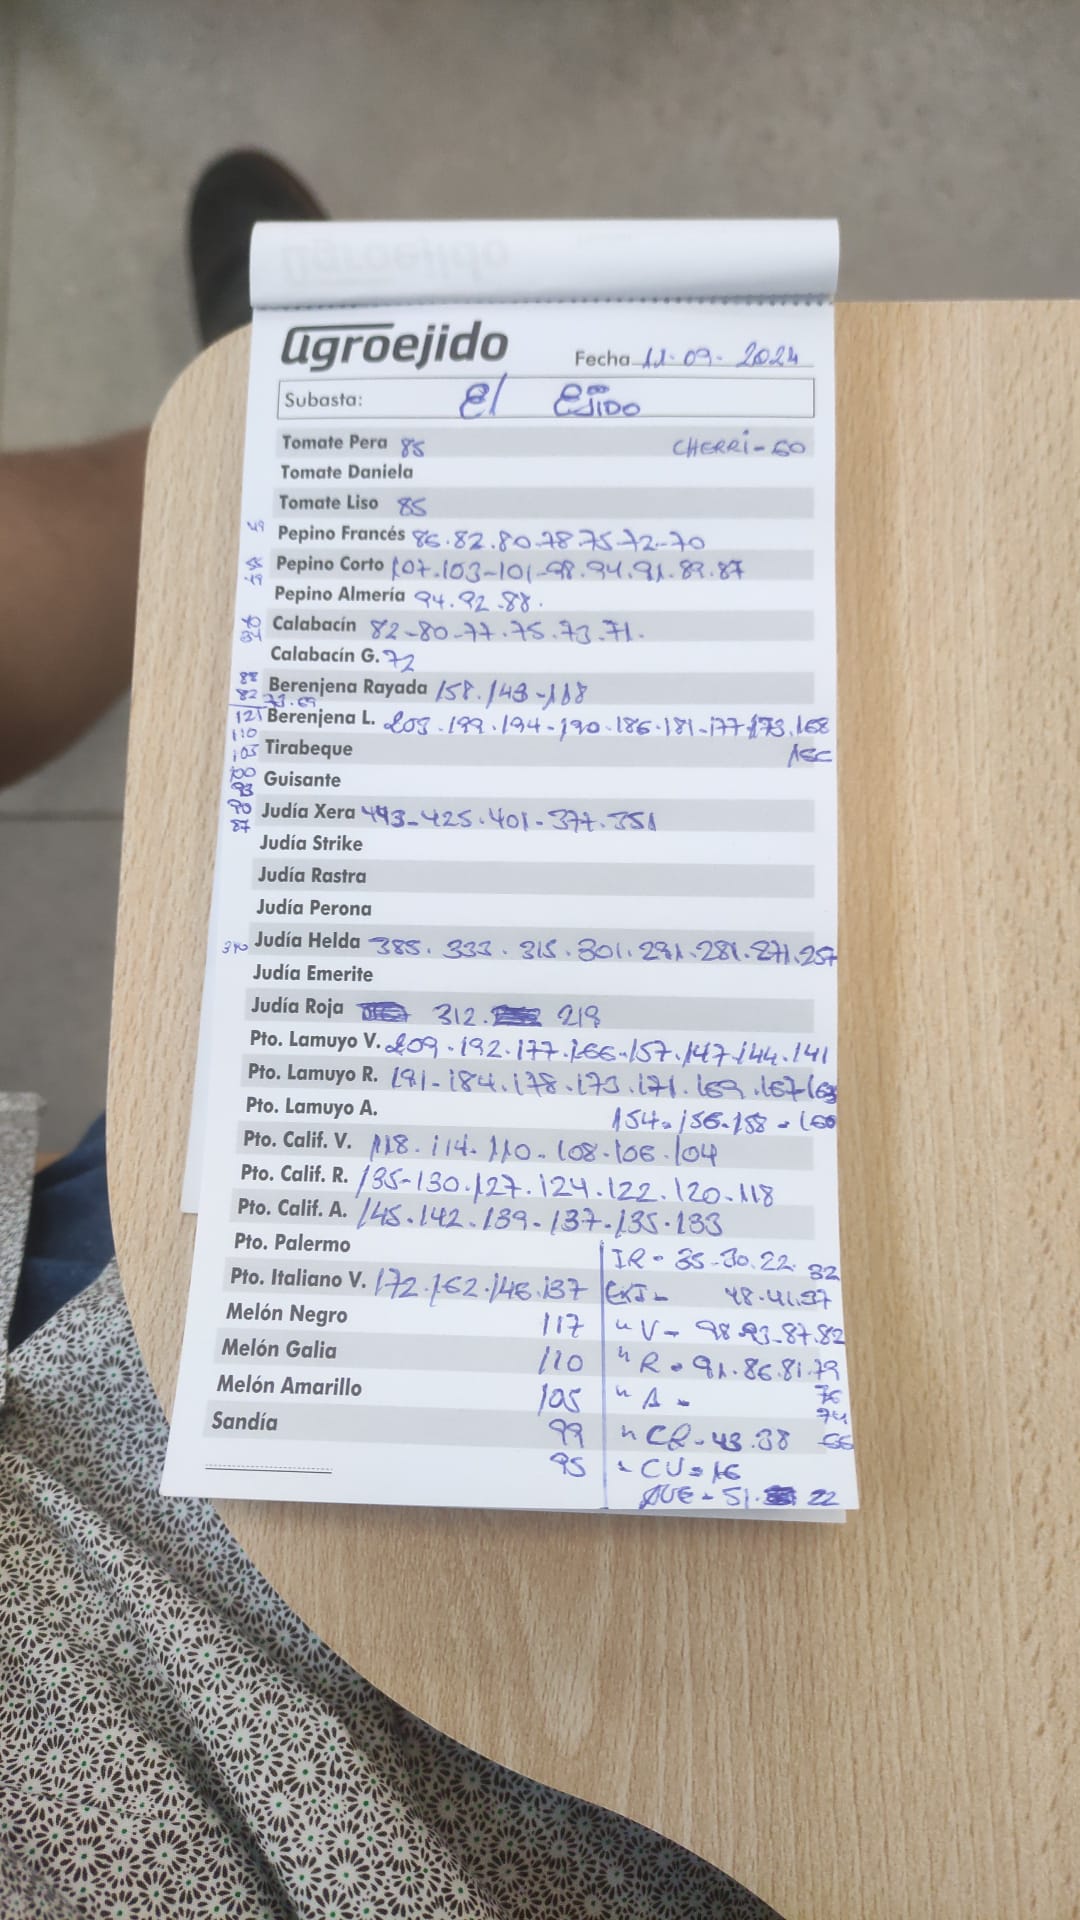 agroejido
Fecha 11-09-2024
Subasta: El EJIDO
Tomate Pera 85 CHERRI-60
Tomate Daniela
Tomate Liso 85
49 Pepino Francés 86.82.80.78.75-72-70
Pepino Corto 107.103-101-98.94.91.89.87
Pepino Almería 94.92.88.
Calabacín 82-80-77.75.73.71.
Calabacín G. 72
88
82 Berenjena Rayada 158.143-118
73.69
121 Berenjena L. 203.199.194-190.186.181-177.173.168
110
105 Tirabeque
100 Guisante
93
90 Judía Xera 443-425.401-377.351
87
Judía Strike
Judía Rastra
Judía Perona
340 Judía Helda 385.333.315.301.291.281.271.257
Judía Emerite
Judía Roja 312. 219
Pto. Lamuyo V. 209.192.177.166-157.147.144.141
Pto. Lamuyo R. 191-184.178.173.171.169.167-163
Pto. Lamuyo A. 154-156-158-160
Pto. Calif. V. 118.114-110-108-106.104
Pto. Calif. R. 135-130.127.124.122.120-118
Pto. Calif. A. 145.142.139-137-135.133
Pto. Palermo IR-35-30.22. 32
Pto. Italiano V. 172.162.146.137 EXJ- 48.41.37
Melón Negro 117 " V- 98.93-87.82
Melón Galia 110 " R-91.86.81.79
76
Melón Amarillo 105 " A-
74
Sandía 99 " CR-43.38 66
95 " CU=16
AUE-51. 22